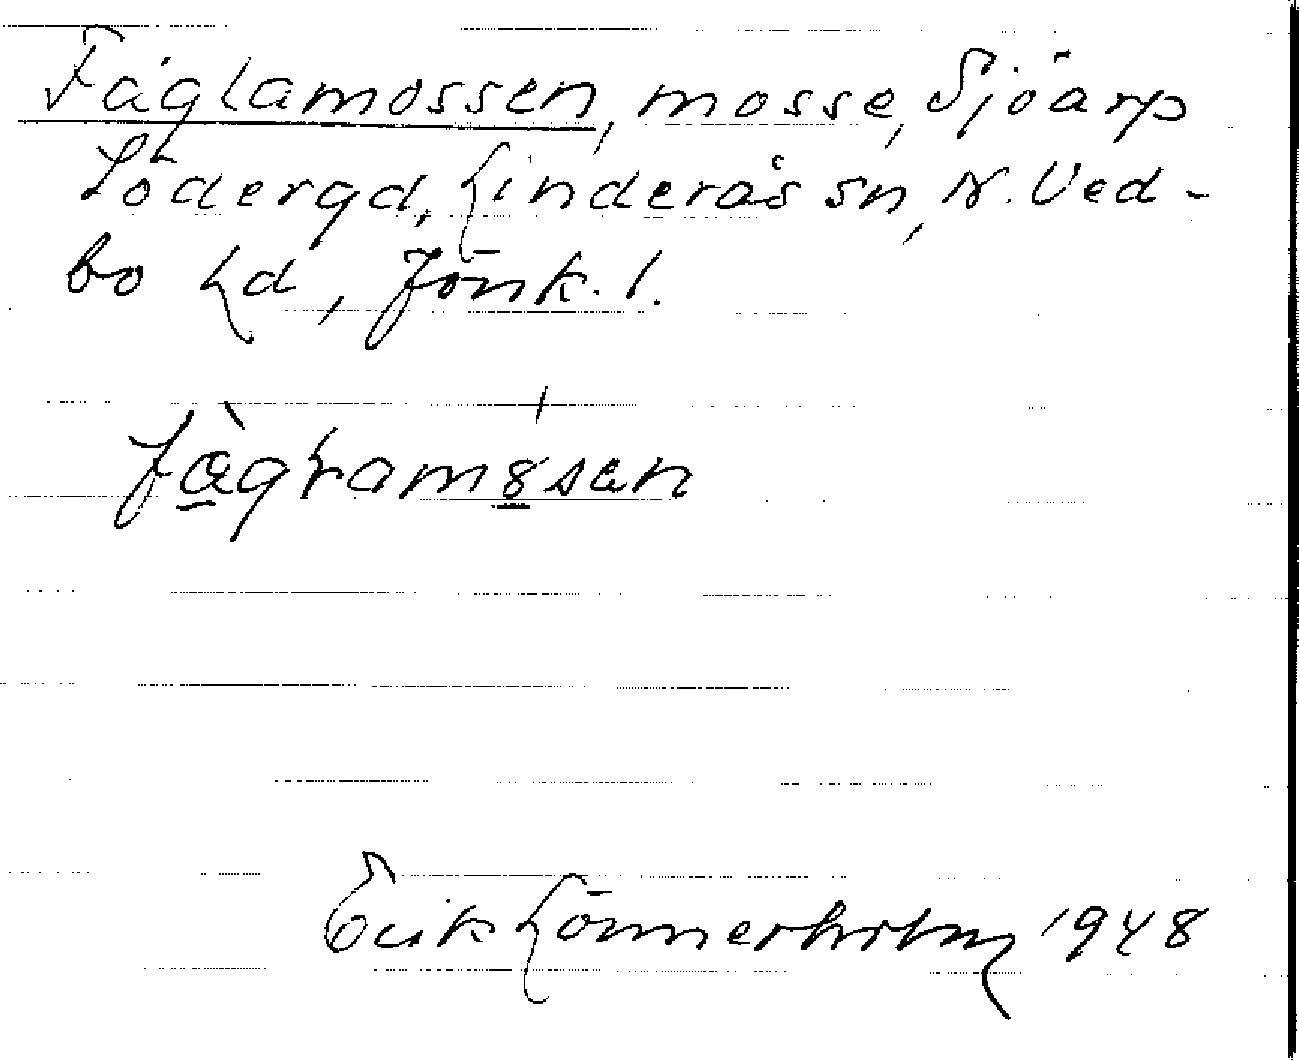 Fåglamossen, mosse, Sjöarp
Södergd, Linderås sn, N. Ved-
bo hd, Jönk. l.
fàgɫamo̲ssen
Erik Lönnerholm 1948